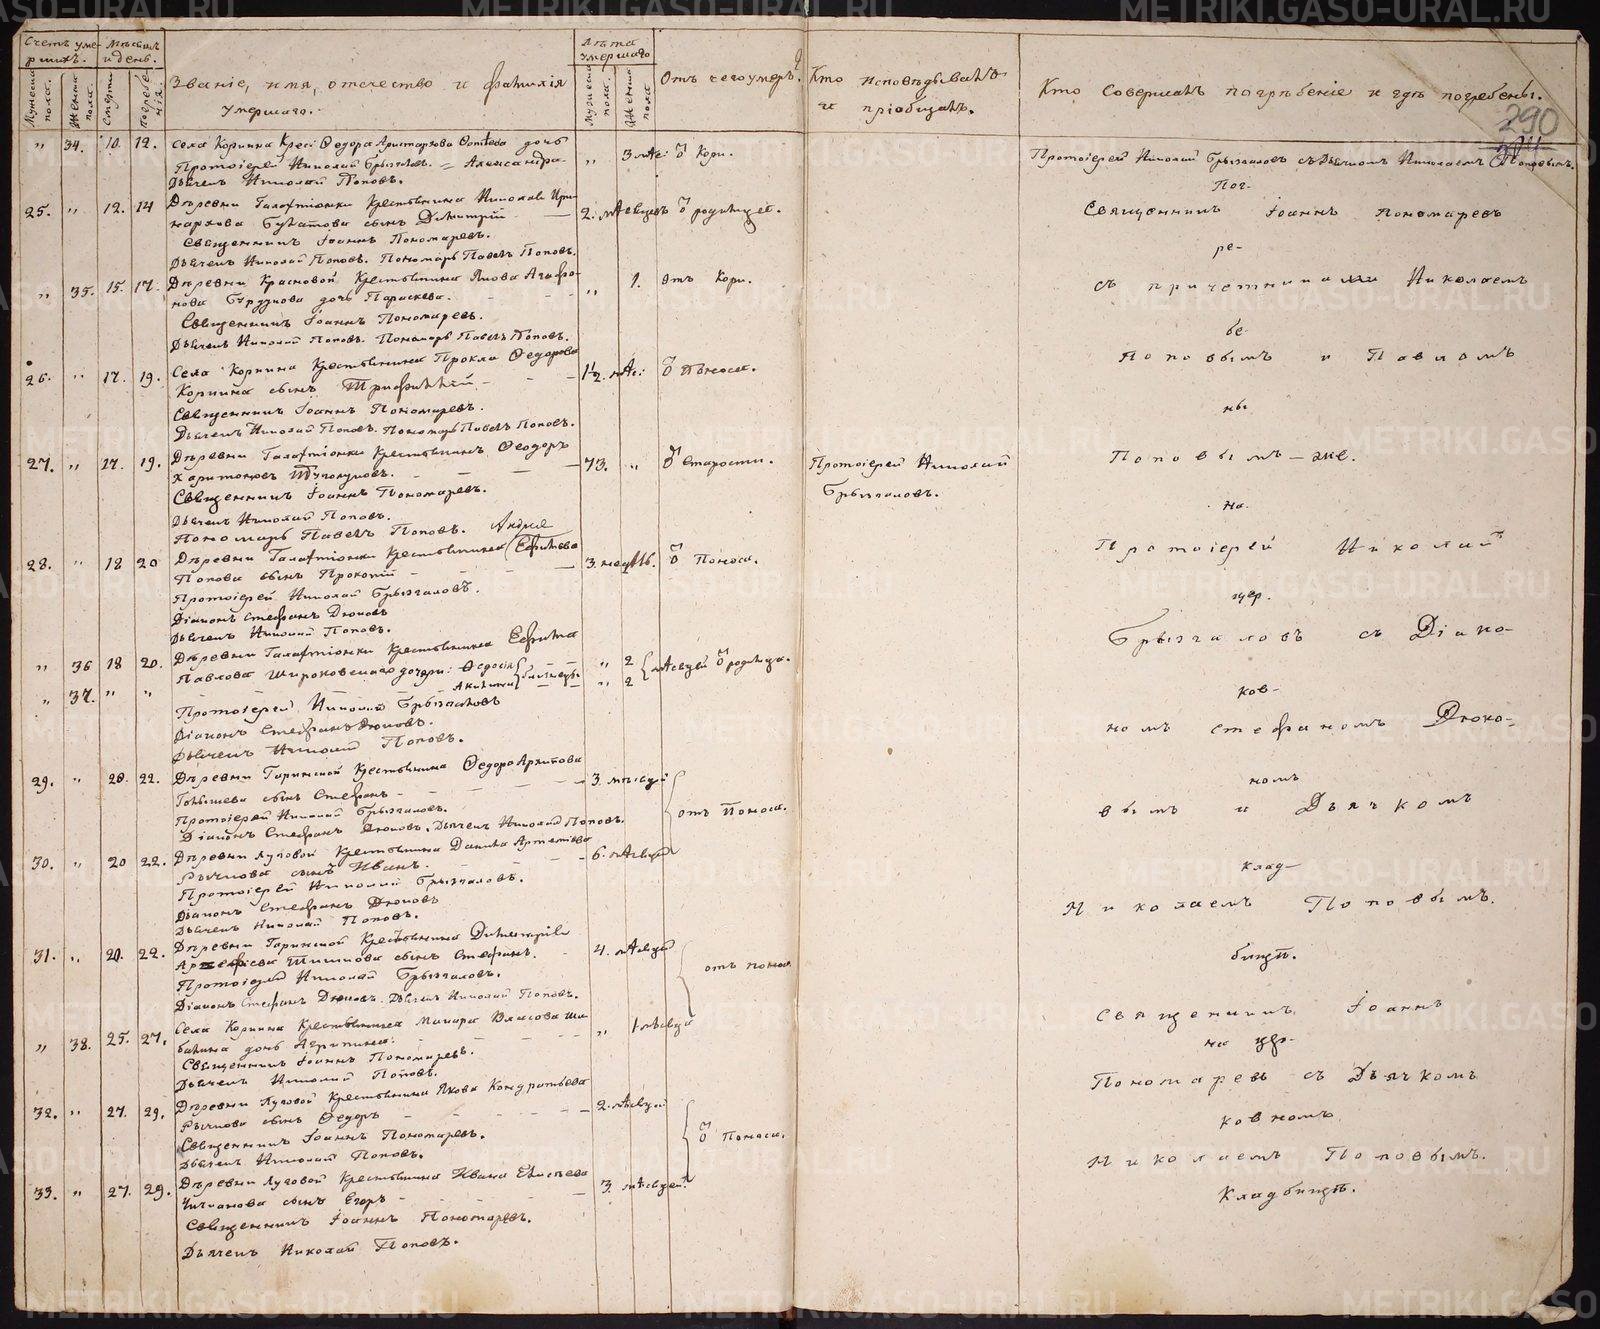 Счетъ умершихъ.
Мѣсяцъ и день.
Званіе, имя, отчество и фамилія умершаго.
Лѣта умершаго
Отъ чего умеръ.
Кто исповѣдывалъ и пріобщалъ.
Кто совершалъ погребеніе и гдѣ погребены.
Мужеска пола.
Женска пола.
Смерти
Погребенія.
Мужеска пола.
Женска пола
290
„ 34. 10. 12. Села Коркина Крес: Ѳедора Аристархова дочь
Протоіерей Николай Брызгаловъ. = Александра „ 3 мѣс: Ѿ Кори.
Дьячекъ Николай Поповъ.
Протоіерей Николай Брызгаловъ съ Дьячкомъ Николаемъ Поповымъ.
Пог-
25. „ 12. 14 Деревни Галактіонки Крестьянина Николая Ири-
нархова сынъ Димитрій 2. мѣсяцевъ Ѿ родимца.
Священникъ Іоаннъ Пономаревъ.
Дьячекъ Николай Поповъ. Пономарь Павелъ Поповъ.
Священникъ Іоаннъ Пономаревъ
ре-
„ 35. 15. 17. Деревни Красновой Крестьянина Якова Агафо-
нова дочь Параскева. „ 1. отъ Кори.
Священникъ Іоаннъ Пономаревъ.
Дьячекъ Николай Поповъ. Пономарь Павелъ Поповъ.
съ причетниками Николаемъ
бе-
Поповымъ и Павломъ
26. „ 17. 19. Села Коркина Крестьянина Прокла Ѳедорова
Коркина сынъ Трифиллій 1½. мѣс: Ѿ Поноса.
Священникъ Іоаннъ Пономаревъ.
Дьячекъ Николай Поповъ. Пономарь Павелъ Поповъ.
ны
27. „ 17. 19. Деревни Галактіонки Крестьянинъ Ѳеодоръ
Харитоновъ 73. „ Ѿ Старости. Протоіерей Николай
Брызгаловъ.
Священникъ Іоаннъ Пономаревъ.
Дьячекъ Николай Поповъ.
Пономарь Павелъ Поповъ.
Поповымъ-же.
на
28. „ 18 20 Деревни Галактіонки Крестьянина Андрея Ефимьева
Попова сынъ Прокопій 3. недѣль. Ѿ Поноса.
Протоіерей Николай Брызгаловъ.
Діаконъ Стефанъ Дюковъ
Дьячекъ Николай Поповъ.
Протоіерей Николай
цер.
Брызгаловъ съ Діако-
„ 36 18 20. Деревни Галактіонки Крестьянина Ефима
Павлова Широковскаго дочери: Ѳедосія „ 2 мѣсяцей Ѿ родимца.
„ 37. „ „ Акилина „ 2
Протоіерей Николай Брызгаловъ
Діаконъ Стефанъ Дюковъ.
Дьячекъ Николай Поповъ.
ков-
номъ Стефаномъ Дюко-
29. „ 20. 22. Деревни Гаринской Крестьянина Ѳедора Архипова
сынъ Стефанъ 3. мѣсяцей
Протоіерей Николай Брызгаловъ.
Діаконъ Стефанъ Дюковъ. Дьячекъ Николай Поповъ.
отъ Поноса.
номъ
вымъ и Дьячкомъ
30. „ 20 22. Деревни Луговой Крестьянина Данила Артемьева
Рычкова сынъ Иванъ. 6. мѣсяцей
Протоіерей Николай Брызгаловъ.
Діаконъ Стефанъ Дюковъ
Дьячекъ Николай Поповъ.
клад-
Николаемъ Поповымъ.
31. „ 20. 22. Деревни Гаринской Крестьянина Димитрія
сынъ Стефанъ. 4. мѣсяцей отъ поноса
Протоіерей Николай Брызгаловъ.
Діаконъ Стефанъ Дюковъ. Дьячекъ Николай Поповъ.
бищѣ.
„ 38. 25. 27. Села Коркина Крестьянина Макара Власова Ша-
бакина дочь Агрипина. „ 1 мѣсяца
Священникъ Іоаннъ Пономаревъ.
Дьячекъ Николай Поповъ.
Священникъ Іоаннъ
на цер-
Пономаревъ съ Дьячкомъ
32. „ 27. 29. Деревни Луговой Крестьянина Якова Кондратьева
Рычкова сынъ Ѳедоръ 2. мѣсяцей
Священникъ Іоаннъ Пономаревъ.
Дьячекъ Николай Поповъ.
Ѿ Поноса.
ковномъ
Николаемъ Поповымъ.
33. „ 27. 29. Деревни Луговой Крестьянина Ивана Елисѣева
сынъ Егоръ 3. мѣсяцей.
Священникъ Іоаннъ Пономаревъ.
Дьячекъ Николай Поповъ.
Кладбищѣ.
METRIKI.GASO-URAL.RU